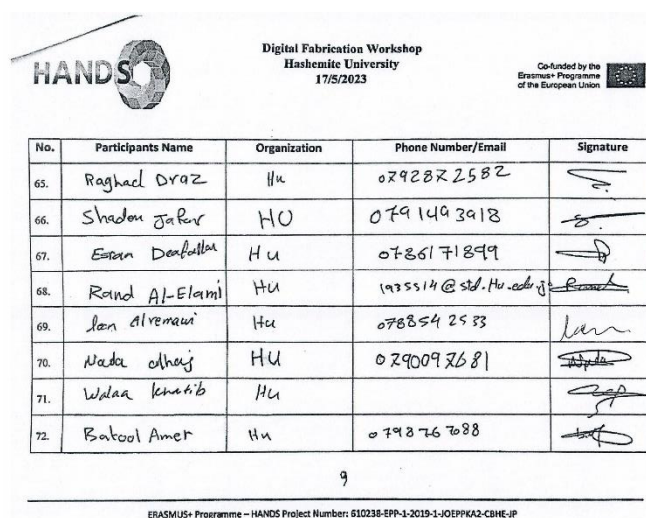 HANDS
Digital Fabrication Workshop
Hashemite University
17/5/2023
Co-funded by the
Erasmus+ Programme
of the European Union
No. Participants Name Organization Phone Number/Email Signature
65. Raghad Draz Hu 0792872582
66. Shaden Jafer HU 0791493918
67. Esraa Hu 0786171899
68. Rand Al-Elami Hu 1935514@std.Hu.edu.jo Rand
69. Alremawi Hu 0788542533
70. Nada alhaj HU 0790097681 Nada
71. Walaa khatib Hu
72. Batool Amer Hu
9
ERASMUS+ Programme – HANDS Project Number: 610238-EPP-1-2019-1-JOEPPKA2-CBHE-JP